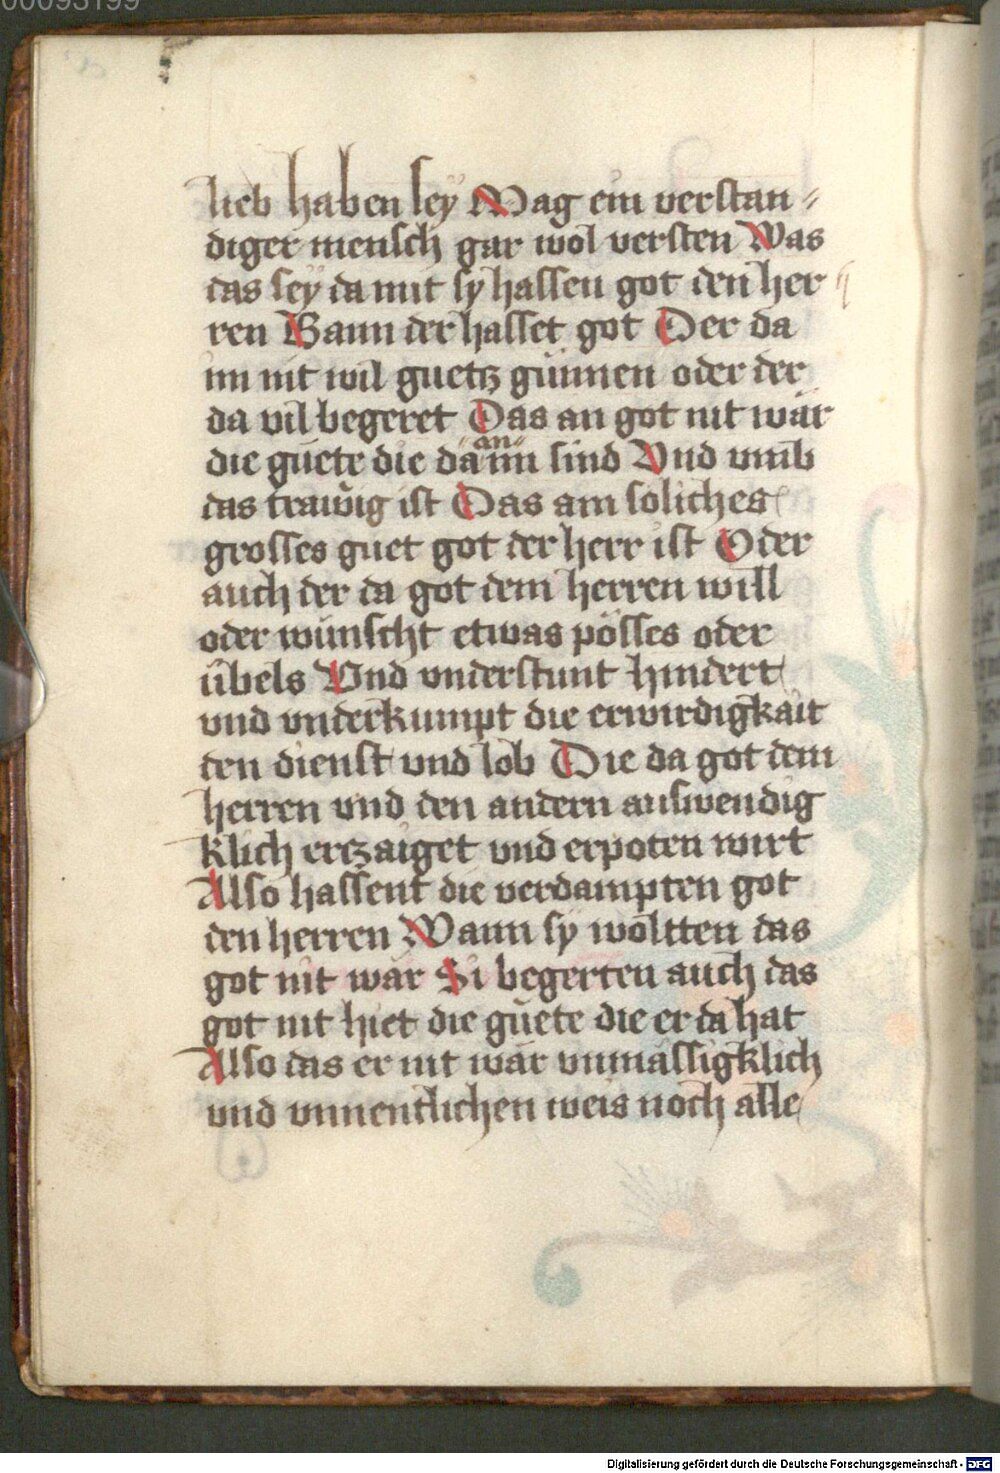 00093199
lieb haben seÿ Mag ein verstan⸗
diger mensch gar wol versten Was
das seÿ da mit sÿ hassen got den her
ren Wann der hasset got Der da
im nit wil guetz günnen oder der
da vil begeret Das an got nit wär
die güete die dann an im sind Vnd vmb
das trawig ist Das am soliches
grosses guet got der herr ist Oder
auch der da got dem herren will
oder wünscht etwas pösses oder
übels Vnd vnderstunt hindert
vnd vnderkumpt die erwirdigkait
den dienst vnd lob Die da got dem
herren vnd den andern auswendig
klich ertzaiget vnd erpoten wirt
Also hassent die verdampten got
den herren Wann sÿ wöltten das
got nit wär Si begerten auch das
got nit hiet die güete die er da hat
Also das er nit wär vnmässigklich
vnd vnnentlichen weis noch alle
Digitalisierung gefördert durch die Deutsche Forschungsgemeinschaft - DFG